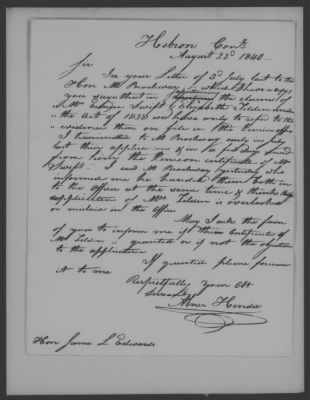 Hebron Con.t
August 22d 1840
Sir
In your Letter of 3d July last to the
Hon Mr Brockway, which I have a copy
you say that in the claims of
Mr Swift & Elizabeth Tilden under
the Act of 1838 we have only to refer to the
evidence then on file in the Pension office
I transmitted to Mr Brockway early in July
last their application & in
from him the Pension certificate of Mr
Swift. I said Mr Brockway yesterday who
informed me he handed them both in
to the Office at the same time & thinks the
application of Mrs Tilden is overlooked
or mislaid in the Office
May I ask the favor
of you to inform me if these Certificates of
Mrs Tilden is granted or if not the objection
to the application
If granted please forward
it to me
Respectfully your Obt
Servant
Abner Hendee
Hon James L Edwards